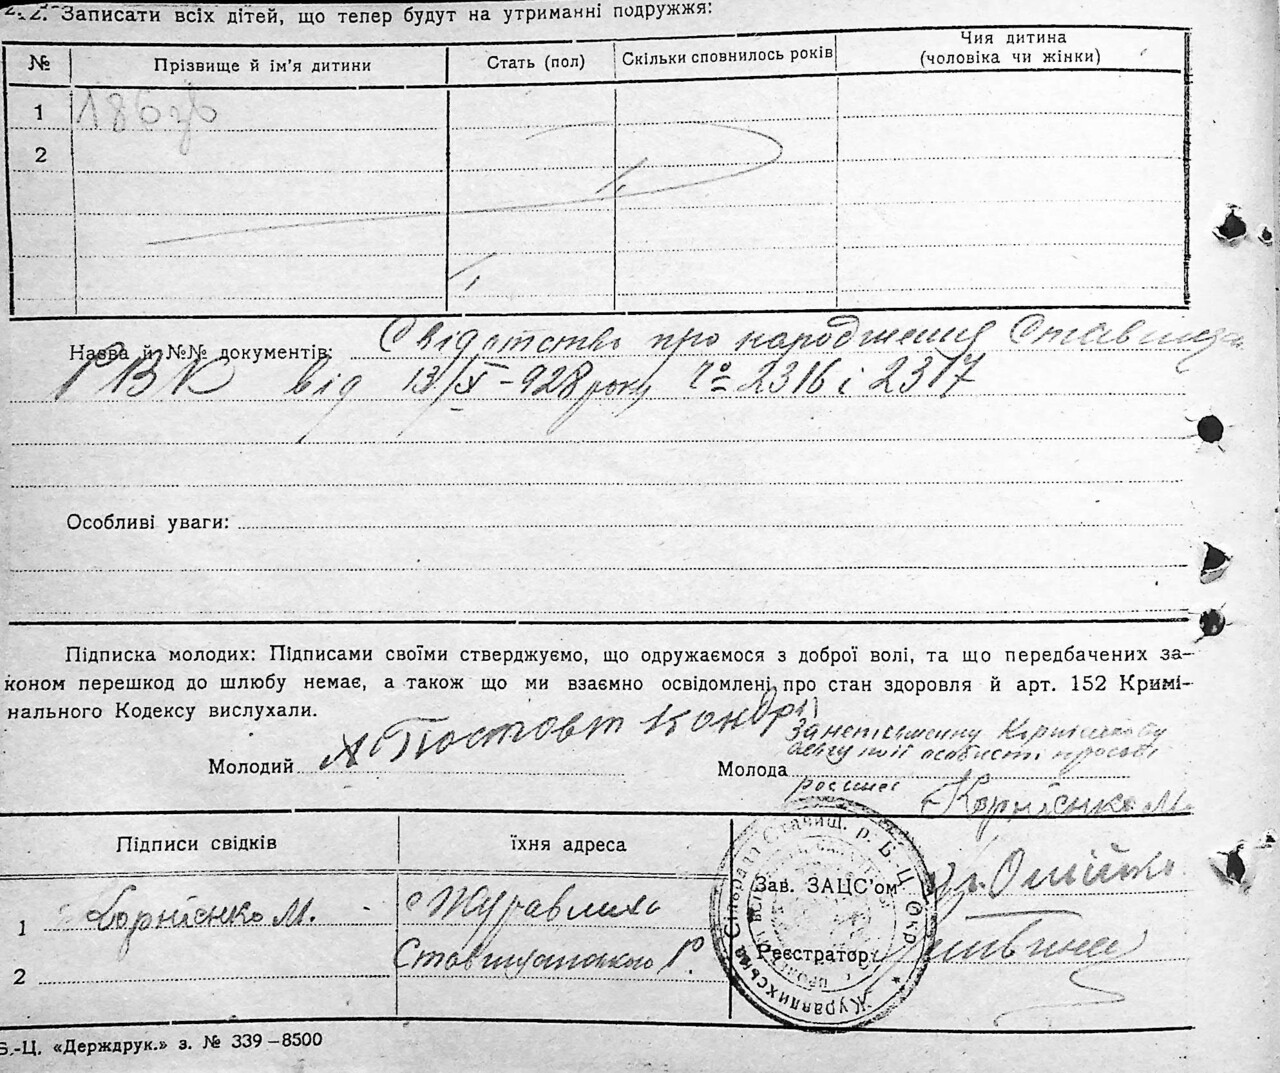 2. Записати всіх дітей, що тепер будут на утриманні подружжя:
№ Прізвище й ім'я дитини Стать (пол) Скільки сповнилось років Чия дитина
(чоловіка чи жінки)
1
2
Назва й №№ документів: Свідотства про народження
РВК від 13/ -928 року № 2316 і 2317
Особливі уваги:
Підписка молодих: Підписами своїми стверджуємо, що одружаємося з доброї волі, та що передбачених за-
коном перешкод до шлюбу немає, а також що ми взаємно освідомлені про стан здоровля й арт. 152 Кримі-
нального Кодексу вислухали.
Молодий Постовт
Молода
Корнієнко М.
Підписи свідків їхня адреса
1 Корнієнко М. с Журавлиха
2 Р.
Зав. ЗАЦС'ом Олійник
Реєстратор
Журавлихська Сільрада Ставищ. р. Б.-Ц. Окр.
Б.-Ц. «Держдрук.» з. № 339–8500